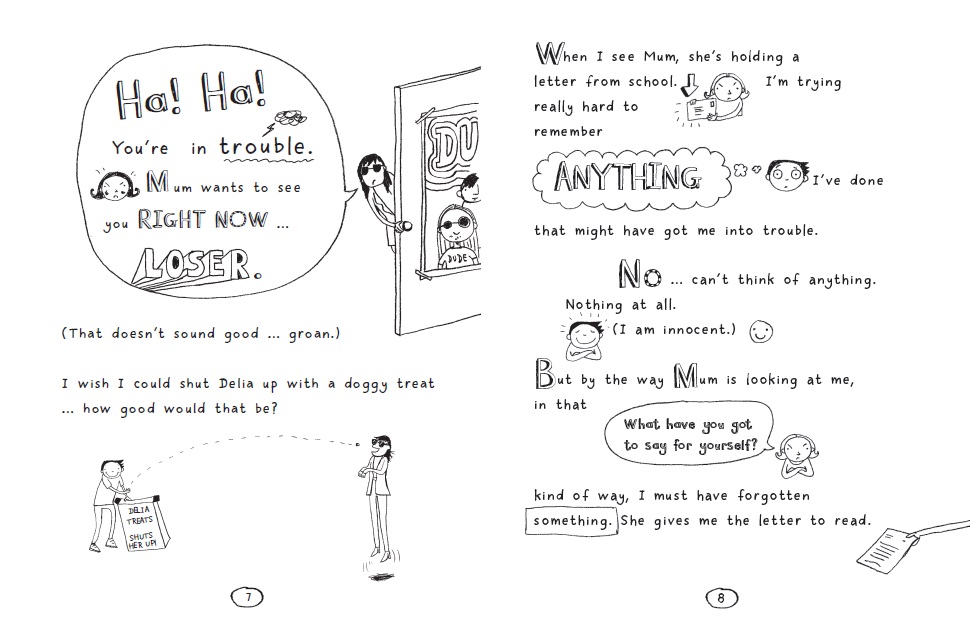 Ha! Ha!
You're in trouble.
Mum wants to see
you RIGHT NOW ...
LOSER.
DU
DUDE
(That doesn't sound good ... groan.)
I wish I could shut Delia up with a doggy treat
... how good would that be?
DELIA
TREATS
SHUTS
HER UP!
7
When I see Mum, she's holding a
letter from school. I'm trying
really hard to
remember
ANYTHING I've done
that might have got me into trouble.
No ... can't think of anything.
Nothing at all.
(I am innocent.)
But by the way Mum is looking at me,
in that
What have you got
to say for yourself?
kind of way, I must have forgotten
something. She gives me the letter to read.
8